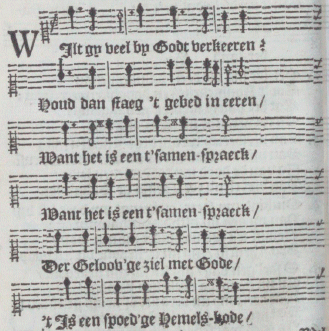 WIlt gy veel by Godt verkeeren?
Houd dan staeg 't gebed in eeren/
Want het is een t'samen-spraeck/
Want het is een t'samen-spraeck/
Der Geloov'ge ziel met Gode/
't Is een spoed'ge Hemels-bode/